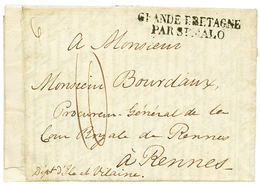 GRANDE BRETAGNE
PAR ST. MALO
6
A Monsieur
Monsieur Bourdaux,
Procureur-Général de la
Cour Royale de Rennes
à Rennes
Dépt d'Ile et Vilaine.